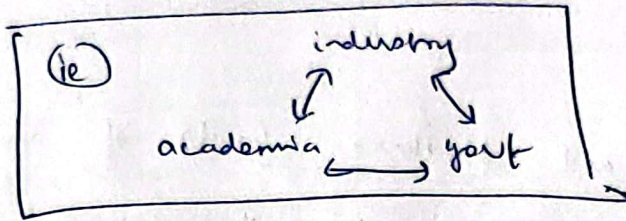 ie
industry
academia govt